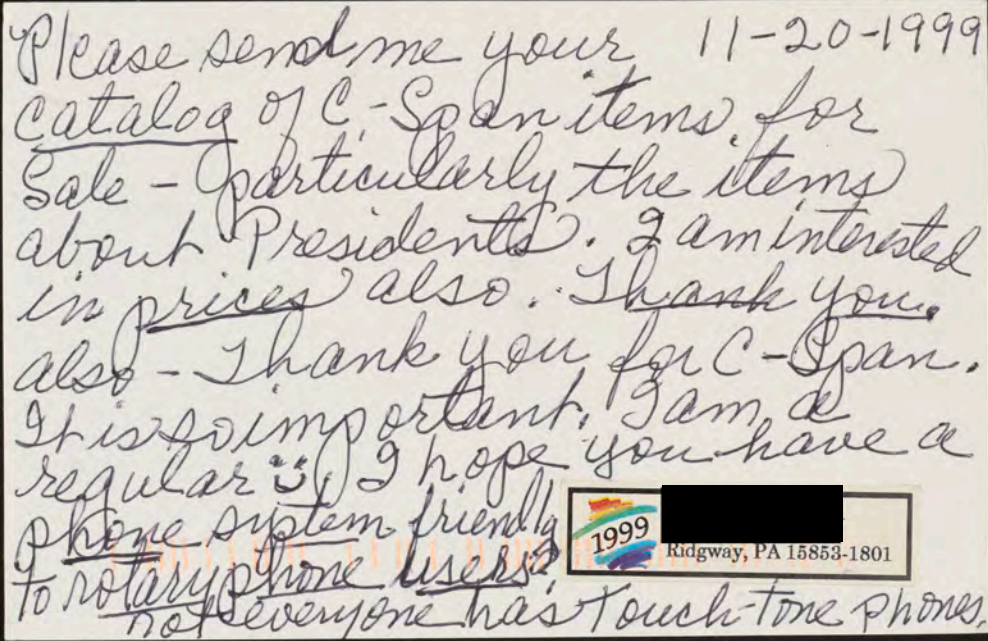 Please send me your 11-20-1999
catalog of C-Span items for
Sale - particularly the items
about Presidents. I am interested
in prices also. Thank you.
also - Thank you for C-Span.
It is so important. I am a
regular ☺. I hope you have a
phone system friendly
to rotary phone users?
not everyone has Touch-Tone phones.
1999
Ridgway, PA 15853-1801